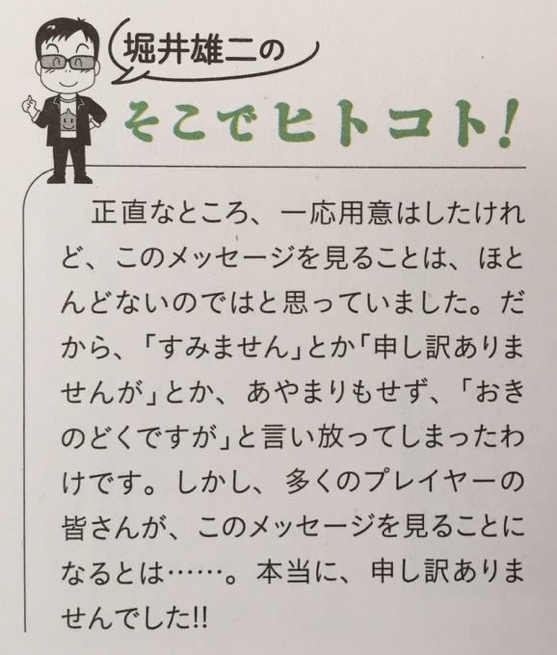 堀井雄二の
そこでヒトコト!
正直なところ、一応用意はしたけれ
ど、このメッセージを見ることは、ほと
んどないのではと思っていました。だ
から、「すみません」とか「申し訳ありま
せんが」とか、あやまりもせず、「おき
のどくですが」と言い放ってしまったわ
けです。しかし、多くのプレイヤーの
皆さんが、このメッセージを見ることに
なるとは……。本当に、申し訳ありま
せんでした!!